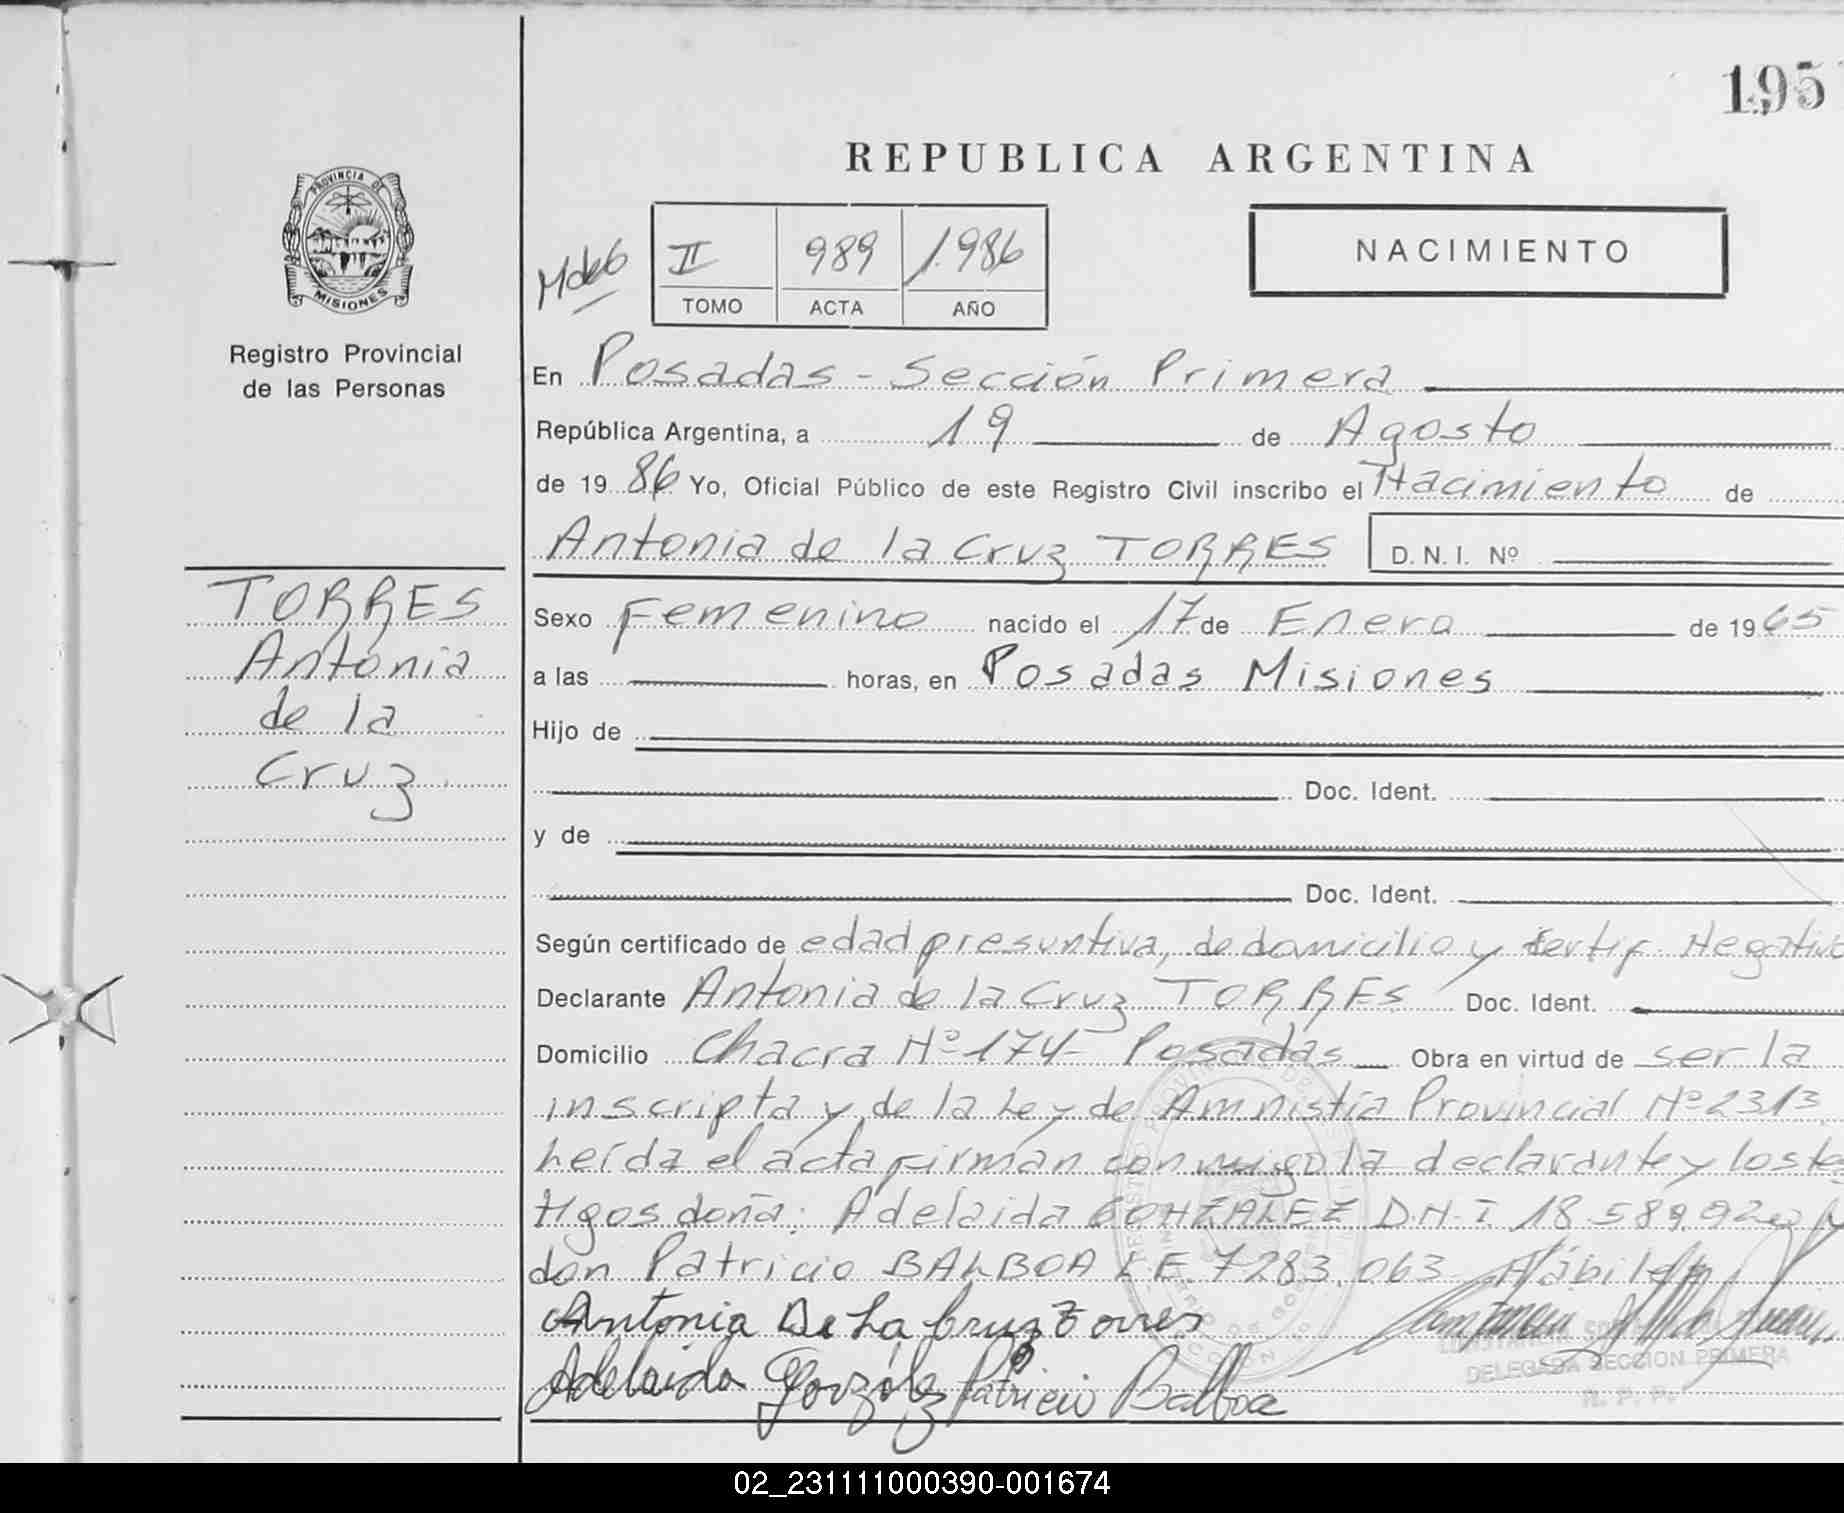 195
REPUBLICA ARGENTINA
PROVINCIA DE
MISIONES
Registro Provincial
de las Personas
II 989 1.986
TOMO ACTA AÑO
NACIMIENTO
En Posadas - Sección Primera
República Argentina, a 19 de Agosto
de 1986 Yo, Oficial Público de este Registro Civil inscribo el Nacimiento de
Antonia de la Cruz TORRES D.N.I. Nº
TORRES
Antonia
de la
Cruz
Sexo Femenino nacido el 17 de Enero de 1965
a las horas, en Posadas Misiones
Hijo de
Doc. Ident.
y de
Doc. Ident.
Según certificado de edad presuntiva, de domicilio y certif. Negativo
Declarante Antonia de la Cruz TORRES Doc. Ident.
Domicilio Chacra Nº 174 - Posadas Obra en virtud de ser la
inscripta y de la Ley de Amnistía Provincial Nº 2313
Leída el acta firman conmigo la declarante y los tes
tigos doña: Adelaida GONZALEZ D.N.I 18.589.92
don Patricio BALBOA L.E. 7283.063 Hábiles
Antonia De La Cruz Torres
DELEGADA SECCION PRIMERA
R. P. P.
Adelaida Gonzáles Patricio Balboa
02_231111000390-001674